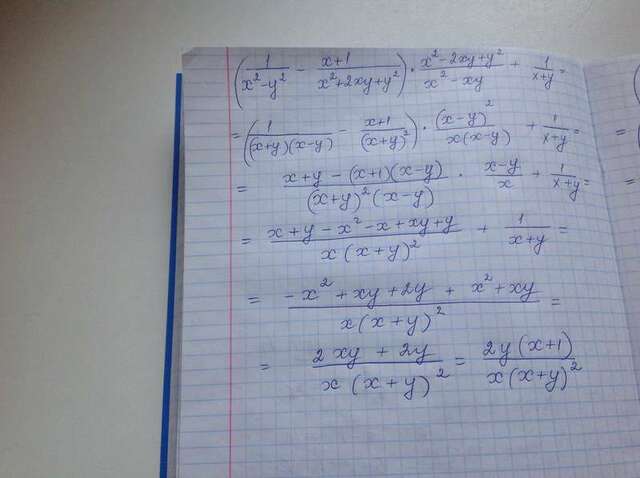 (1/(x²-y²) - (x+1)/(x²+2xy+y²)) · (x²-2xy+y²)/(x²-xy) + 1/(x+y) =
= (1/((x+y)(x-y)) - (x+1)/(x+y)²) · (x-y)²/(x(x-y)) + 1/(x+y) =
= (x+y-(x+1)(x-y))/((x+y)²(x-y)) · (x-y)/x + 1/(x+y) =
= (x+y-x²-x+xy+y)/(x(x+y)²) + 1/(x+y) =
= (-x²+xy+2y+x²+xy)/(x(x+y)²) =
= (2xy+2y)/(x(x+y)²) = 2y(x+1)/(x(x+y)²)